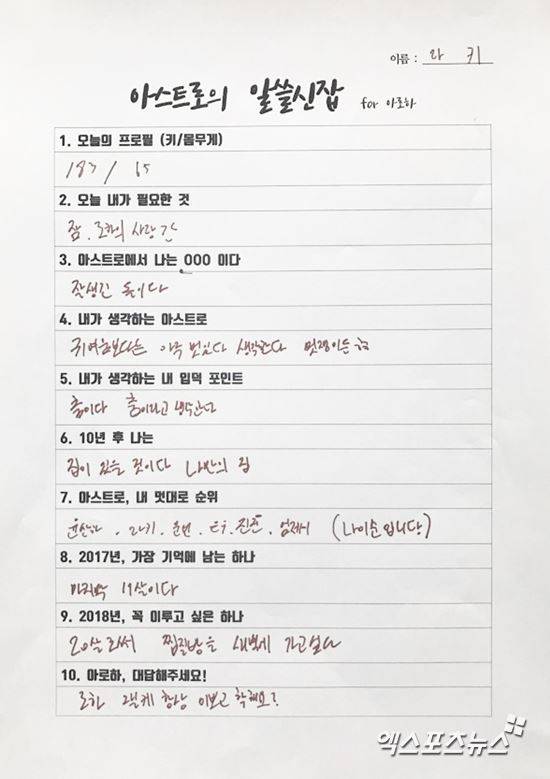 이름 : 라 키
아스트로의 알쓸신잡 for 아로하
1. 오늘의 프로필 (키/몸무게)
183 / 65
2. 오늘 내가 필요한 것
잠. 로하의 사랑
3. 아스트로에서 나는 OOO 이다
잘생긴 돌이다
4. 내가 생각하는 아스트로
귀여움보다는 아주 멋있다 생각한다 멋쟁이든
5. 내가 생각하는 내 입덕 포인트
춤이다 춤이라고 생각한다
6. 10년 후 나는
집이 있을 것이다 나만의 집
7. 아스트로, 내 멋대로 순위
윤산하 . 라키 . 문빈 . 진진 . (나이순입니다)
8. 2017년, 가장 기억에 남는 하나
마지막 19살이다
9. 2018년, 꼭 이루고 싶은 하나
20살로써 찜질방을 새벽에 가고싶다
10. 아로하, 대답해주세요!
로하 항상 이쁘고 착해요?
엑스포츠뉴스